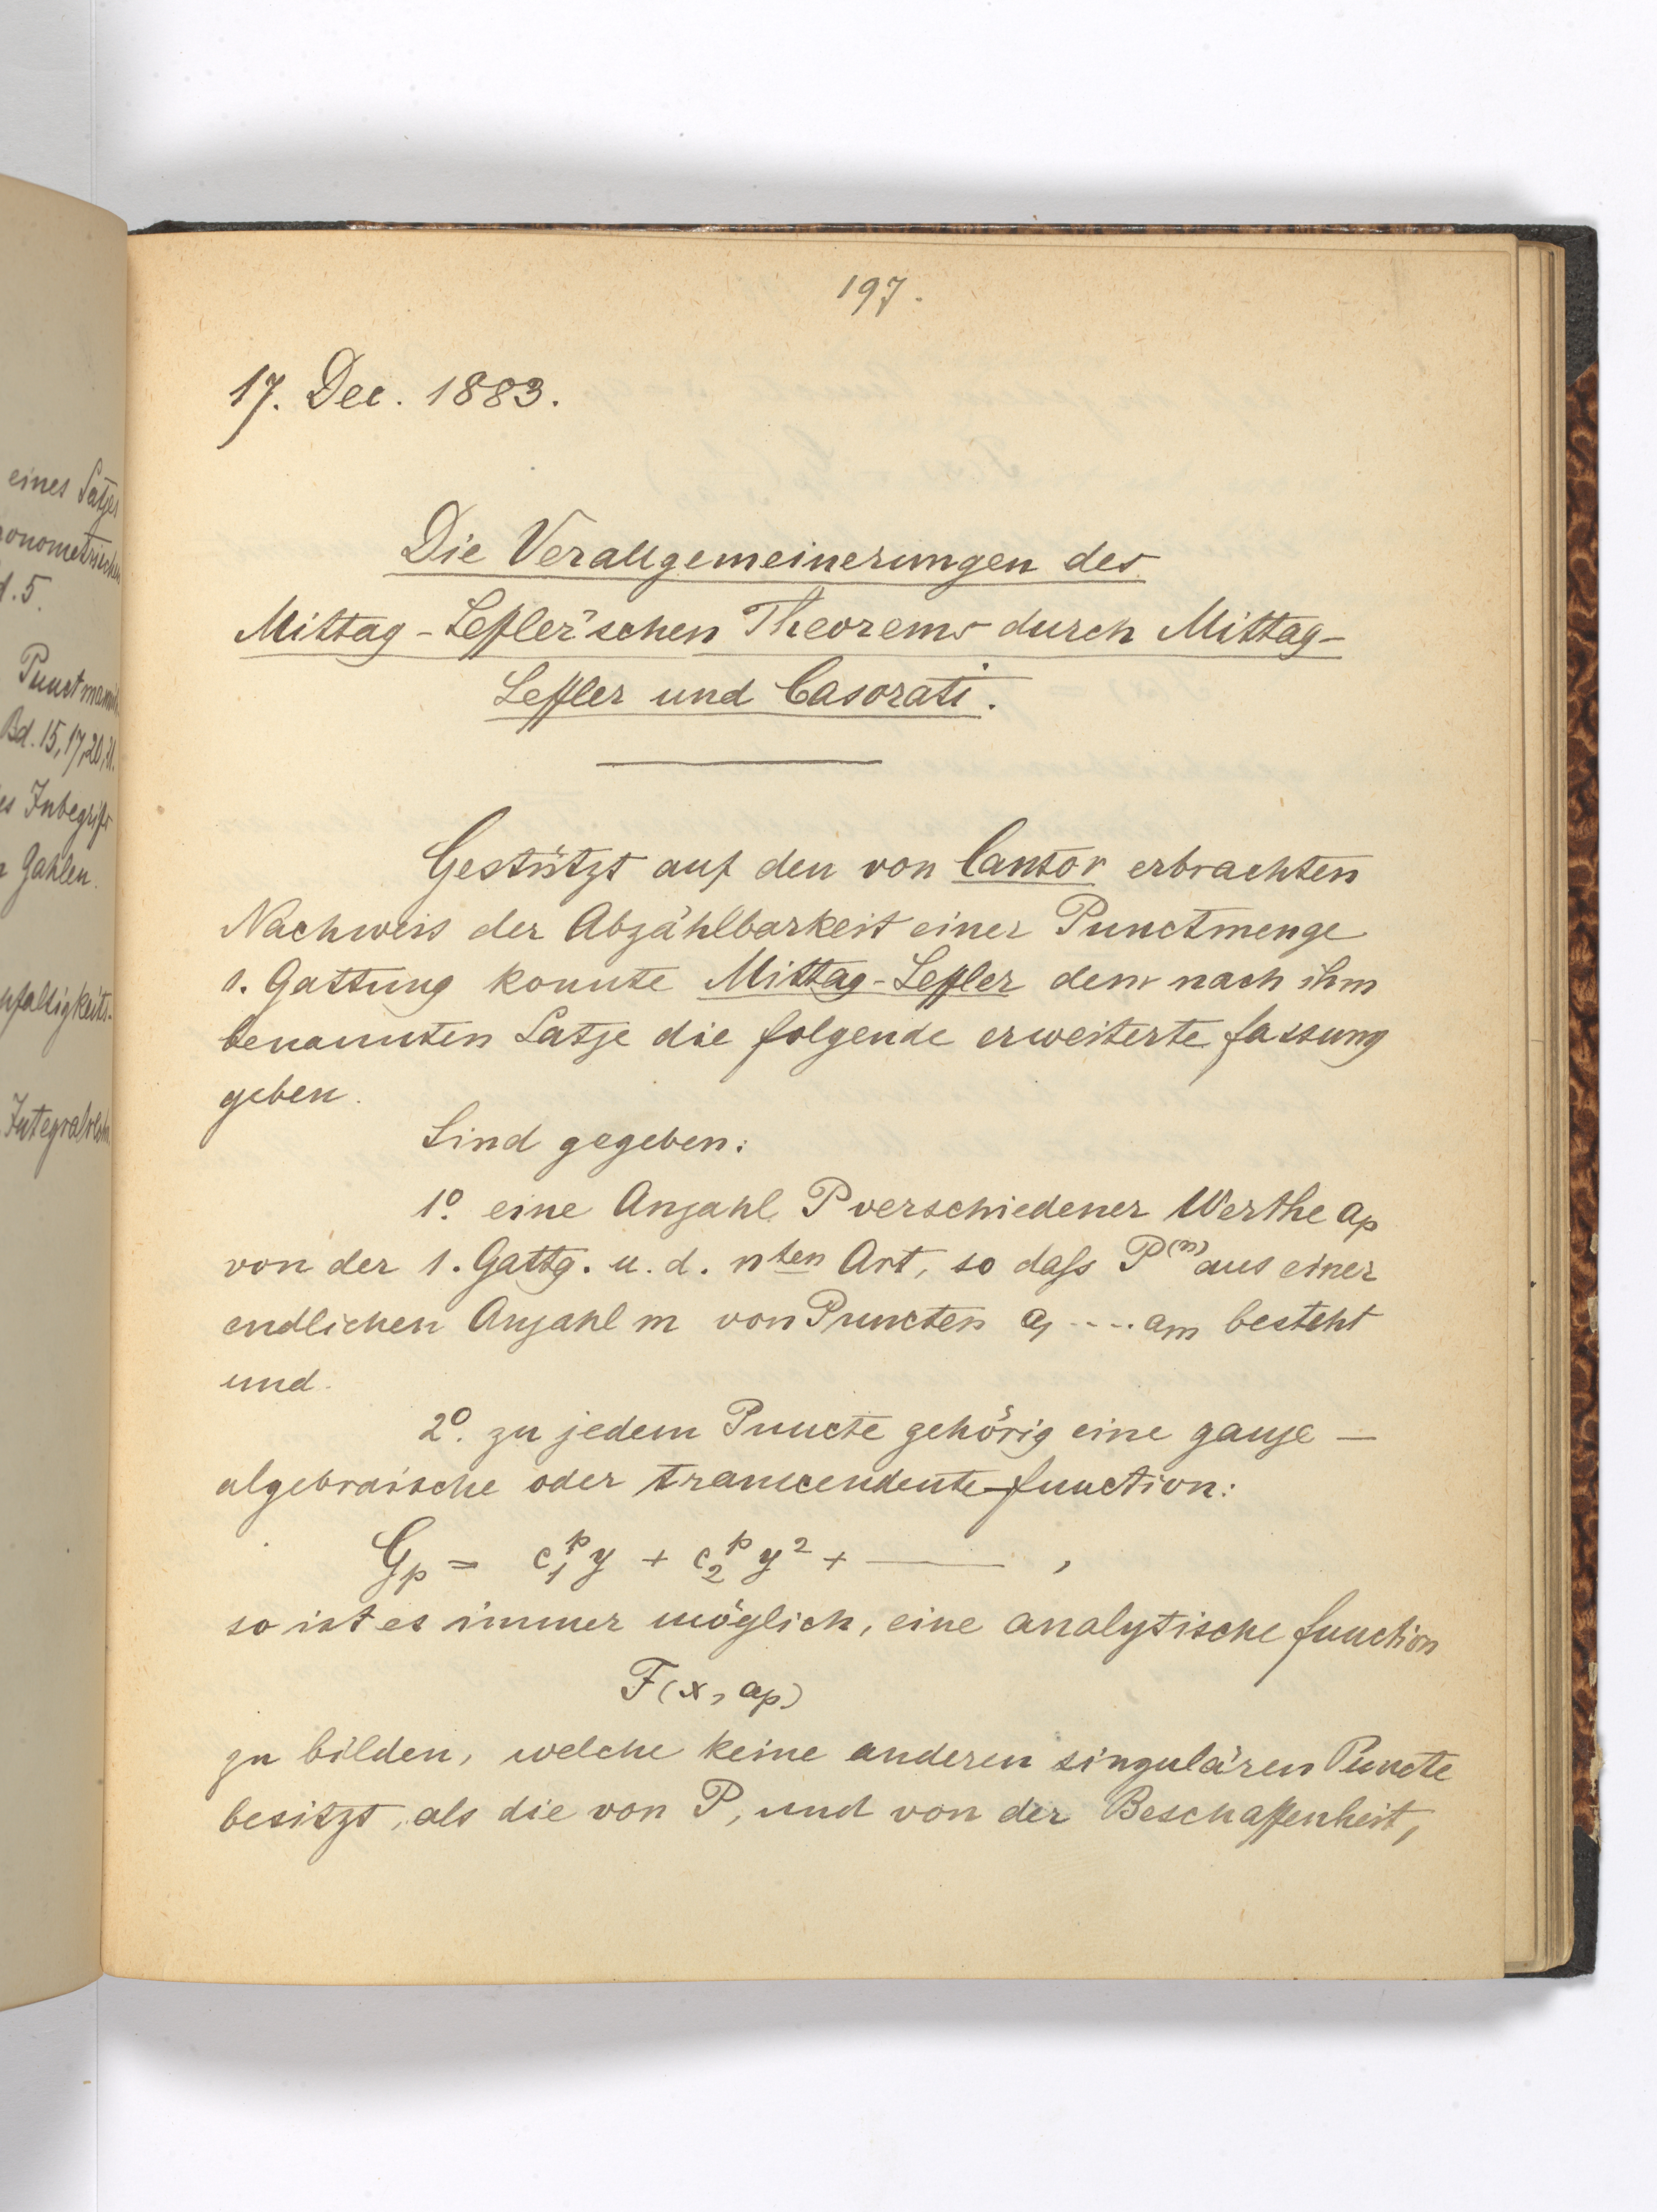 eines Satzes
d. 5.
Bd. 15, 17, 20, 21.
Zahlen.
197.
17. Dec. 1883.
Die Verallgemeinerungen des
Mittag-Leffler'schen Theorems durch Mittag-
Leffler und Casorati.
Gestützt auf den von Cantor erbrachten
Nachweis der Abzählbarkeit einer Punctmenge
1. Gattung konnte Mittag-Leffler dem nach ihm
benannten Satze die folgende erweiterte Fassung
geben.
Sind gegeben:
1º. eine Anzahl P verschiedener Werthe aₚ
von der 1. Gattg. u. d. nten Art, so daſs P⁽ⁿ⁾ aus einer
endlichen Anzahl m von Puncten a₁ .... aₘ besteht
und.
2º. zu jedem Puncte gehörig eine ganze —
algebraische oder transcendente Function:
Gₚ = c₁ᵖ y + c₂ᵖ y² + ——— ,
so ist es immer möglich, eine analytische Function
F(x, aₚ)
zu bilden, welche keine anderen singulären Puncte
besitzt, als die von P, und von der Beschaffenheit,